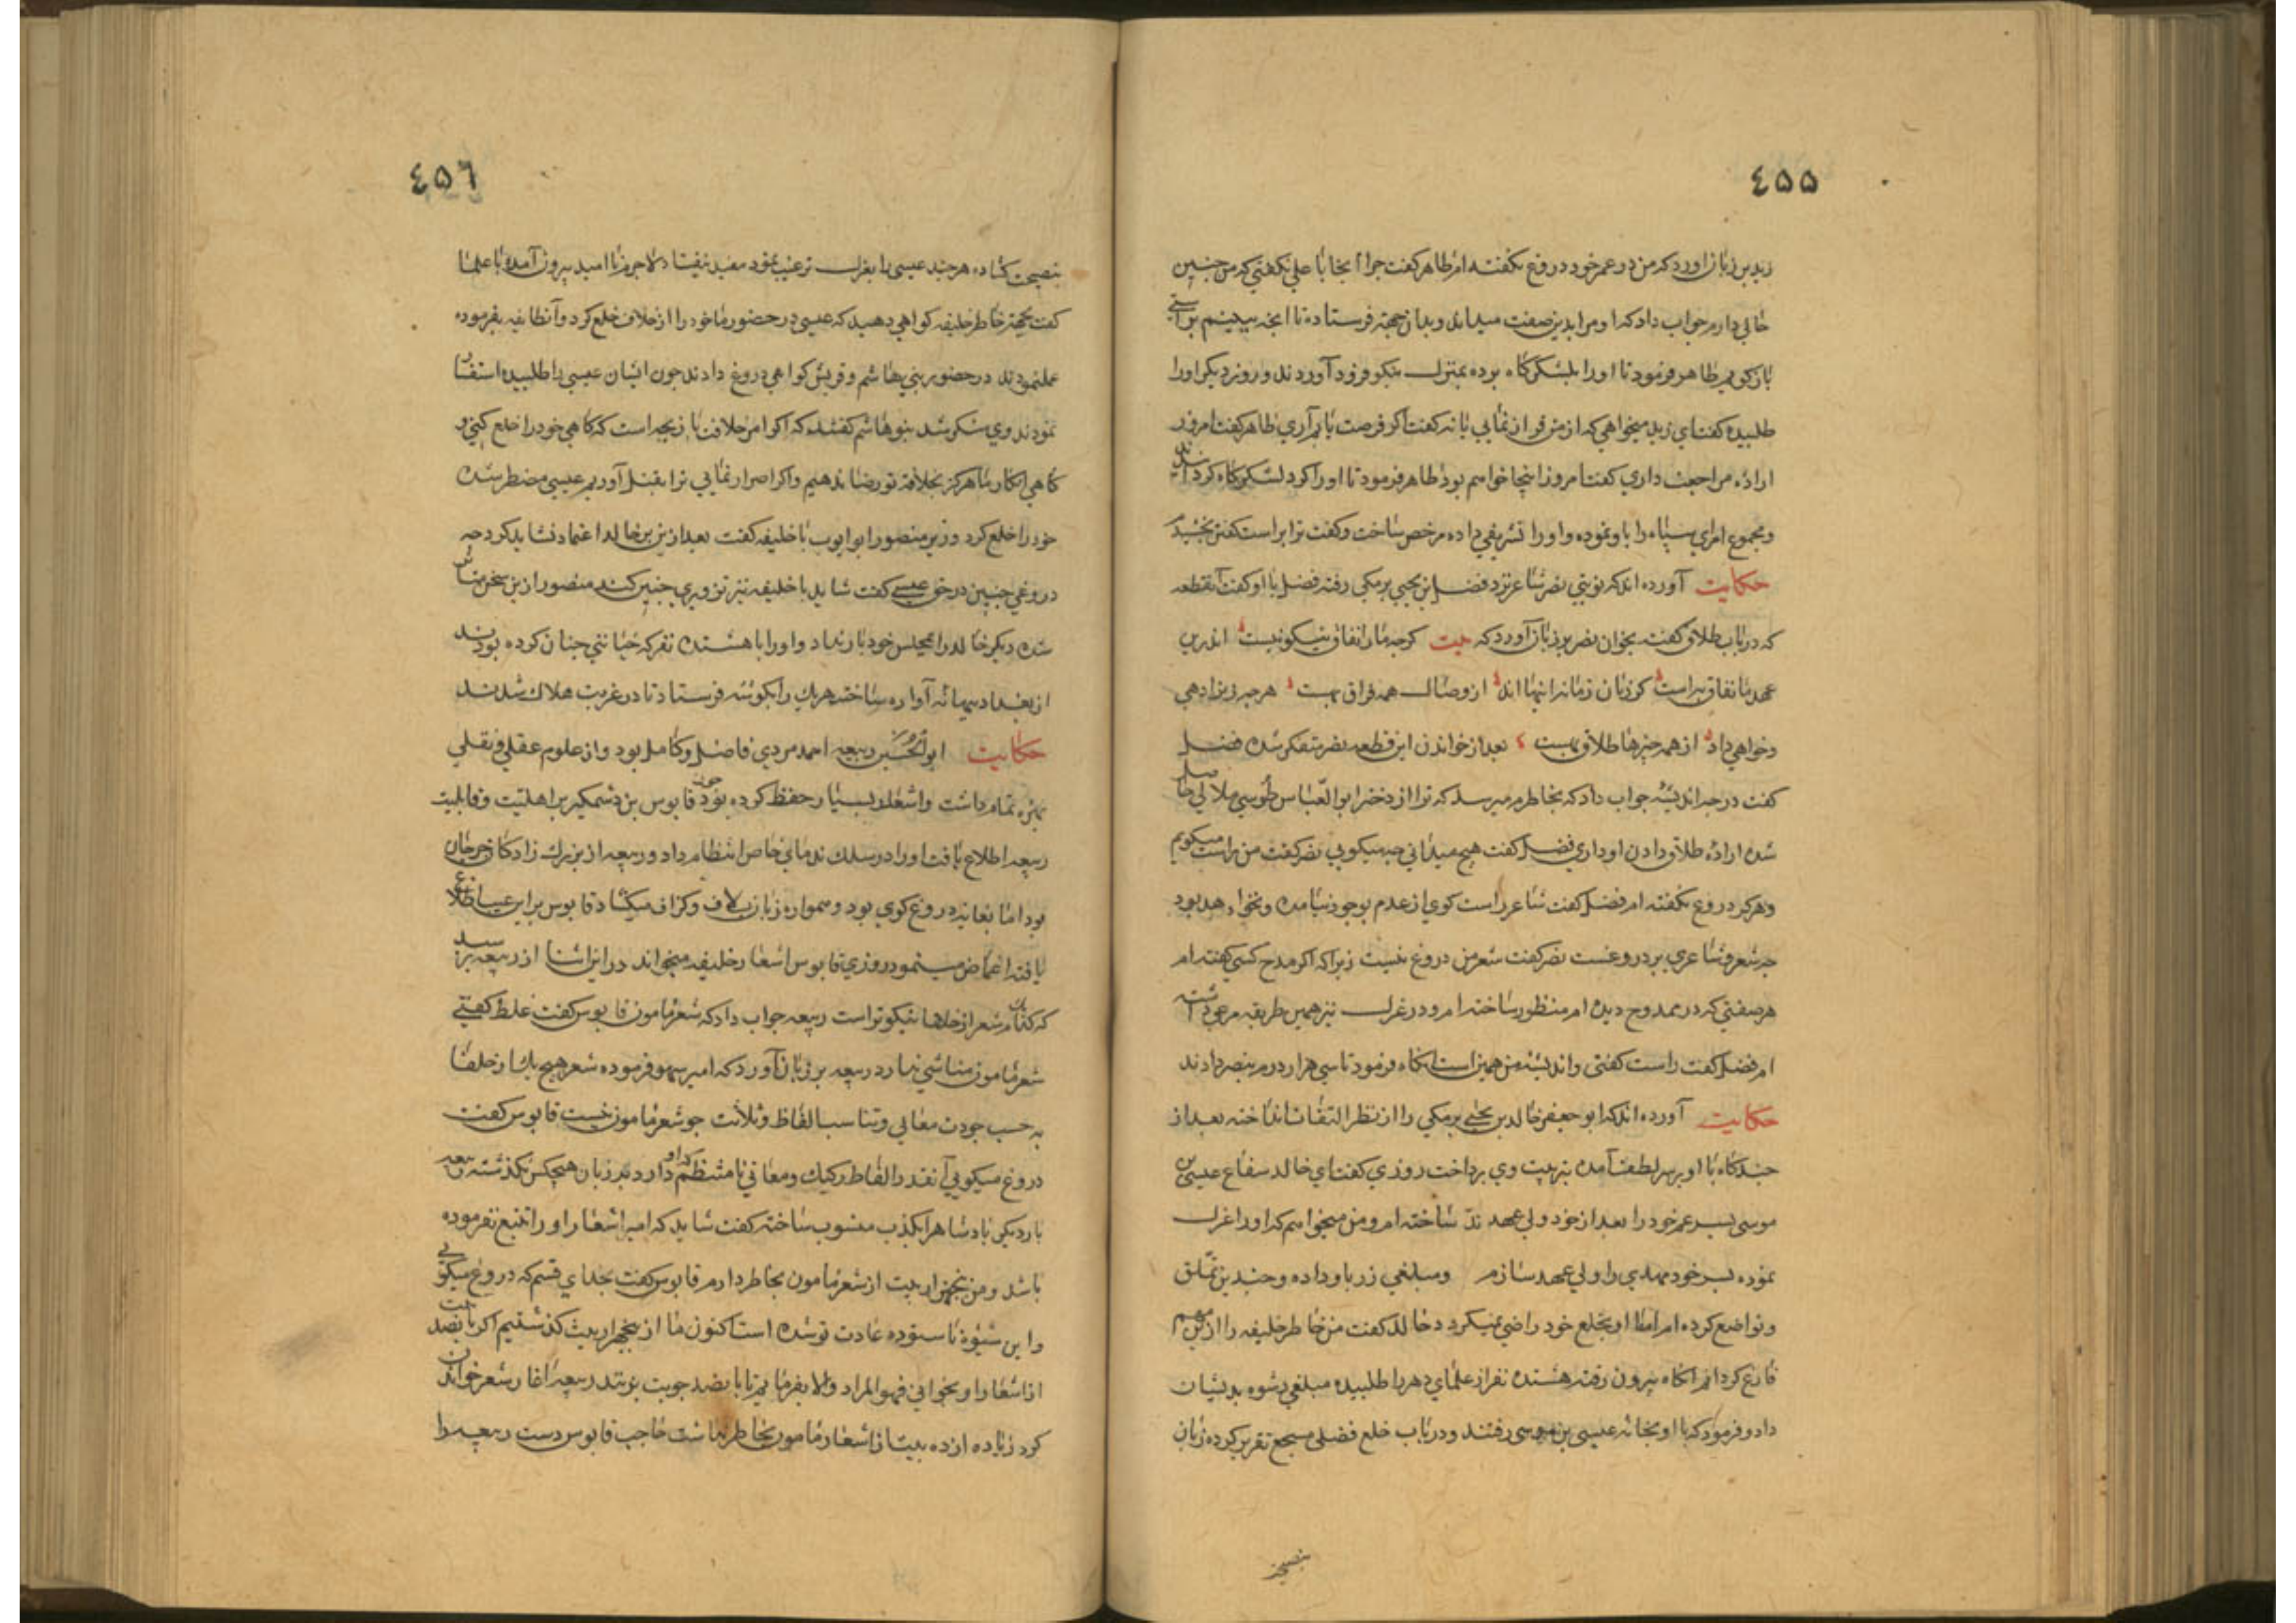 ٤٥٥
زید بن زبان آورد که من در عمر خود دروغ نکفته ام طاهر کفت چرا آنجا با علی نکفتی که من چنین
حالی دارم جواب داد که او مرا بدین صفت میداند و بدان جهته فرستاده تا آنچه ببینم براستی
باز کویم طاهر فرمود تا او را بلشکرکاه برده بمنزل نیکو فرود آوردند و روز دیکر او را
طلبیده کفت ای زید میخواهی که از من فرار نمایی یا نه کفت اکر فرصت یابم آری طاهر کفت امروز
اراده مراجعت داری کفت امروز اینجا خواهم بود طاهر فرمود تا او را کرد لشکرکاه کردانند
و مجموع امرای سپاه را باو نموده و او را تشریفی داده مرخص ساخت و کفت ترا براست کفتن بخشیدم
حکایت آورده اند که نوبتی نصر شاعر نزد فضل بن یحیی برمکی رفته فضل با او کفت آن قطعه
که در باب طلاق کفته بخوان نصر بر زبان آورد که بیت کرچه ما را نفاق نیکو نیست اندرین
عهد ما نفاق به است کز زبان زمانه ابنها اند از وصال همه فراق بهست هر چه زن را دهی
و خواهی داد از همه چیزها طلاق بهست بعد از خواندن این قطعه نصر متفکر شده فضل
کفت در چه اندیشه جواب داد که بخاطرم میرسد که ترا از دختر ابو العباس طوسی ملالی حاصل
شده اراده طلاق دادن او داری فضل کفت هیچ میدانی چه میکویی نصر کفت من راست میکویم
و هرکز دروغ نکفته ام فضل کفت شاعر راست کوی از عدم بوجود نیامده و نخواهد بود
چه شعر و شاعری بر دروغست نصر کفت شعر من دروغ نیست زیرا که اکر مدح کسی کفته ام
هر صفتی که در ممدوح دیده ام منظور ساخته ام و در غزل نیز همین طریقه مرعی داشته
ام فضل کفت راست کفتی و اندیشه من همین است آنکاه فرمود تا سی هزار درم بنصر دادند
حکایت آورده اند که ابو جعفر خالد بن یحیی برمکی را از نظر التفات انداخته بعد از
چند کاه با او بر سر لطف آمده بتربیت وی پرداخت روزی کفت ای خالد سفاح عیسی بن
موسی پسر عم خود را بعد از خود ولی عهد ساخته ام و من میخواهم که او را عزل
نموده پسر خود مهدی را ولی عهد سازم و مبلغی زر باو داده و چندین تملق
و تواضع کرده ام اما او بخلع خود راضی نمیکردد خالد کفت من خاطر خلیفه را ازین مهم
فارغ کردانم آنکاه بیرون رفته هشتده نفر از علمای دهر را طلبیده مبلغی رشوه بدیشان
داد و فرمود که با او بخانه عیسی بن موسی رفتند و در باب خلع فضلی مسجع تقریر کرده زبان
بنصیحت
٤٥٦
بنصیحت کشاده هر چند عیسی را بعزل ترغیب نمود مفید نیفتاد لاجرم نا امید بیرون آمده با علما
کفت بجهة خاطر خلیفه کواهی دهید که عیسی در حضور ما خود را از خلافت خلع کرد و آن طایفه بفرموده
عمل نمودند در حضور بنی هاشم و قریش کواهی دروغ دادند چون ایشان عیسی را طلبیده استفسار
نمودند وی منکر شد بنو هاشم کفتند که اکر امر خلافت بازیچه است که کاهی خود را خلع کنی و
کاهی انکار ما هرکز بخلافة تو رضا ندهیم و اکر اصرار نمایی ترا بقتل آوریم عیسی مضطر شده
خود را خلع کرد وزیر منصور ابو ایوب با خلیفه کفت بعد ازین بر خالد اعتماد نشاید کرد چه
دروغی چنین در حق عیسی کفت شاید با خلیفه نیز تزویری چنین کند منصور ازین سخن متاثر
شده دیکر خالد را بمجلس خود بار نداد و او را با هشتده نفر که خیانتی چنان کرده بودند
از بغداد ببهانه آواره ساخته هر یک را بکوشه فرستاد تا در غربت هلاک شدند
حکایت ابو الحسین ربیعه احمد مردی فاضل و کامل بود و از علوم عقلی و نقلی
بهره تمام داشت و اشعار بسیار حفظ کرده بود چون قابوس بن وشمکیر بر اهلیت و قابلیت
ربیعه اطلاع یافت او را در سلک ندمای خاص انتظام داد و ربیعه از بزرک زادکان جرجان
بود اما بغایت دروغ کوی بود و همواره زبان بلاف و کزاف میکشاد قابوس برین عیب اطلاع
یافته اغماض مینمود روزی قابوس اشعار خلیفه میخواند در این اثنا از ربیعه پرسید
که کدام شعر از خلفا نیکوتر است ربیعه جواب داد که شعر مامون قابوس کفت غلط کفتی
شعر مامون متناسبی ندارد ربیعه بر زبان آورد که امیر سهو فرموده شعر هیچ یک از خلفا
به حسب جودت معانی و تناسب الفاظ و ثلاثت چو شعر مامون نیست قابوس کفت
دروغ میکویی آنقدر الفاظ رکیک و معانی نامنتظم که او دارد بر زبان هیچکس نکذشته ربیعه
بار دیکر پادشاه را بکذب منسوب ساخته کفت شاید که امیر اشعار او را تتبع نفرموده
باشد و من پنجهزار بیت از شعر مامون بخاطر دارم قابوس کفت بخدای قسم که دروغ میکویی
و این شیوه ناستوده عادت تو شده است اکنون ما از پنجهزار بیت کذشتیم اکر پانصد بیت
از اشعار او بخوانی فهو المراد و الا بفرمایم تا پانصد چوبت بزنند ربیعه آغاز شعر خواندن
کرد زیاده از ده بیت از اشعار مامون بخاطر نداشت حاجب قابوس دست ربیعه را